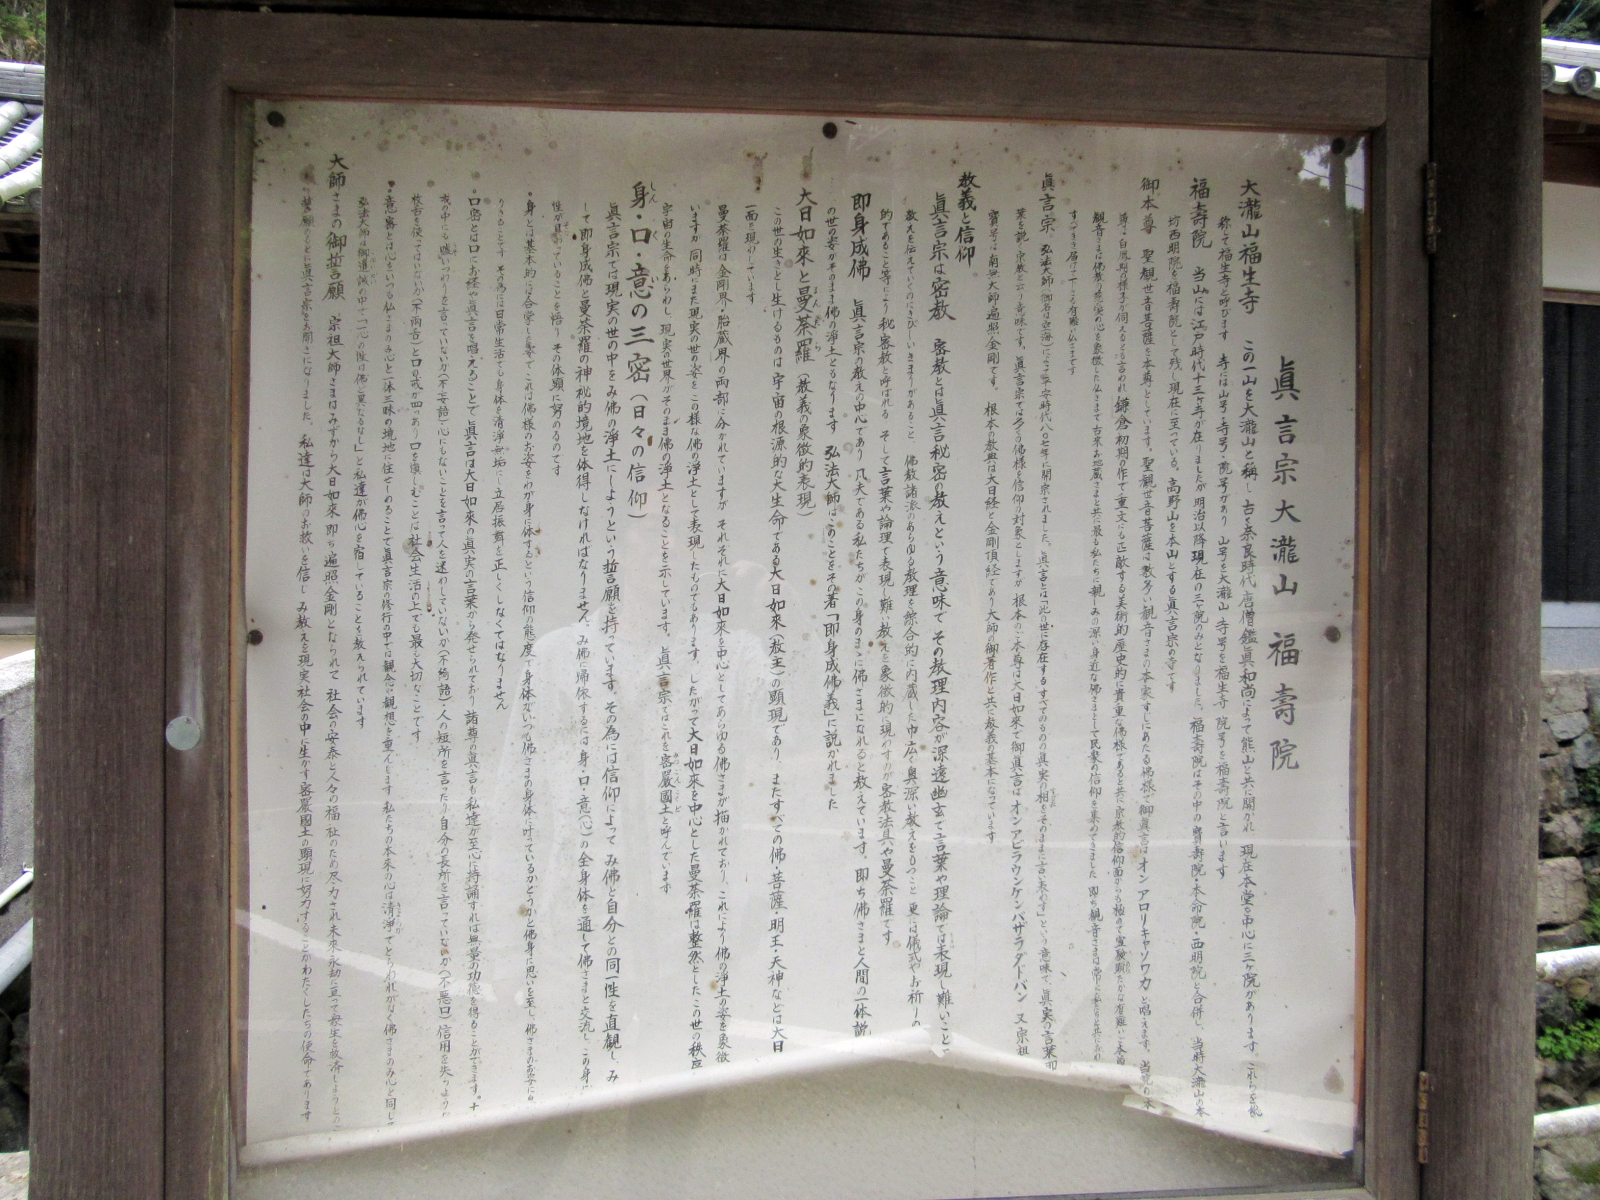 眞言宗大瀧山 福壽院
大瀧山福生寺 この一山を大瀧山と称し 古く奈良時代 唐僧鑑眞和尚によって熊山と共に開かれ 現在本堂を中心に三ヶ院があります。これらを総
称して福生寺と呼びます 寺には山号・寺号・院号があり 山号を大瀧山 寺号を福生寺 院号を福壽院と言います
福壽院 当山には江戸時代十三ヶ寺が在りましたが明治以降現在の三ヶ院のみとなりました。福壽院はその中の寶壽院・本命院・西明院と合併し、当時大瀧山の本
坊西明院を福壽院として残し現在に至っている。高野山を本山とする眞言宗の寺です
御本尊 聖観世音菩薩を本尊としています。聖観世音菩薩は数多い観音さまの本家すじにあたる佛様で御眞言は オン アロリキャ ソワカ と唱えます。当院の本
尊は白鳳期の様式を伺えるとも言われ 鎌倉初期の作で重文にも匹敵する美術的歴史的に貴重な佛様であると共に宗教的信仰面からも極めて霊験顕たかな有難いご本尊
観音さまは佛教の慈悲の心を象徴した仏さまで古来お地蔵さまと共に最も私たちに親しみの深い身近な佛さまとして民衆の信仰を集めてきました 即ち観音さまは常に
すべてをき届けて下さる有難い仏さまです
眞言宗 弘法大師(御名は空海)によって平安時代八〇七年に開宗されました。眞言とは「此の世に存在するすべてのものの真実の相をそのままに言い表わす」という意味で、眞実の言葉即
葉を説く宗教と云う意味です。眞言宗ではあらゆる佛様を信仰の対象としますが 根本のご本尊は大日如来で御眞言は オン アビラウンケン バザラダドバン 又宗祖
寶号は南無大師遍照金剛です。根本の教典は大日経と金剛頂経であり大師の御著作と共に教義の基本になっています
教義と信仰
眞言宗は密教 密教とは眞言秘密の教えという意味で その教理内容が深遠幽玄で言葉や理論では表現し難いこと
教えを伝えていくのにきびしいきまりがあること 佛教諸派のあらゆる教理を綜合的に内蔵した巾広く奥深い教えをもつこと 更には儀式やお祈りの
的であること等により 秘密教と呼ばれる そして言葉や論理で表現し難い教えを象徴的に現わすのが密教法具や曼荼羅です
即身成佛 眞言宗の教えの中心であり 凡夫である私たちがこの身のままに佛さまになれると教えています。即ち佛さまと人間の一体説
の世の姿がそのまま佛の浄土ともなります 弘法大師はこのことをその著「即身成佛義」に説かれました
大日如來と曼荼羅(教義の象徴的表現)
この世の生きとし生けるものは宇宙の根源的な大生命である大日如來(教主)の顕現であり、またすべての佛・菩薩・明王・天神などは大日
一面を現わしています
曼荼羅は金剛界・胎蔵界の両部に分かれていますが それぞれに大日如来を中心としてあらゆる佛さまが描かれており、これにより佛の浄土の姿を象徴
いますが 同時にまた現実の世の姿をこの様な佛の浄土として表現したものでもあります。したがって大日如来を中心とした曼荼羅は整然としたこの世の秩序
宇宙の生命をあらわし 現実の世界がそのまま佛の浄土となることを示しています。眞言宗ではこれを密嚴國土と呼んでいます
身・口・意の三密(日々の信仰)
眞言宗では現実の世の中をみ佛の浄土にしようという誓願を持っています。その為には信仰によって み佛と自分との同一性を直観し、み
して即身成佛と曼荼羅の神秘的境地を体得しなければなりません。み佛に帰依するには身・口・意(心)の全身体を通して佛さまと交流し、この身に
性が具わっていることを悟り その体顕に努めるのです
・身とは基本的には合掌した姿で これは佛様のお姿をわが身に体するという信仰の態度で身体がいつも佛さまの身体に叶っているかどうかと佛身に思いを至し、佛さまのお姿に
りきることです その為には日常生活でも身体を清浄無垢に 立居振舞を正しくしなくてはなりません
・口密とは口にお経や眞言を唱えることで 眞言は大日如來の眞実の言葉から発せられており 諸尊の眞言も私達が至心に持誦すれば無量の功徳を得ることができます。十
戒の中にも 嘘いつわりを言っていないか(不妄語)心にもないことを言って人を迷わしていないか(不綺語)・人の短所を言ったり自分の長所を言っていないか(不悪口)信用を失うような
枚舌を使ってはいないか(不両舌)と口の戒が四つあり 口を慎しむことは社会生活の上でも最も大切なことです
・意密とは心をいつも私とみ心と一体三昧の境地に住せしめることで眞言宗の修行の中では観念に観想を重んじます 私たちの本来の心は清浄でとらわれがなく佛さまのみ心と同じ
弘法大師は御遺誡の中で「一心の性は佛と異なるなし」と私達が佛心を宿していることを教えられています
大師さまの御誓願 宗祖大師さまはみずから大日如來即ち遍照金剛となられて 社会の安泰と人々の福祉のため尽力され未來永劫に亘って衆生を救済しようとの
誓願のもとに眞言宗をお開きになりました。私達は大師のお救いを信じ み教えを現実社会の中に生かす密嚴國土の顕現に努力することがわたくしたちの使命であります